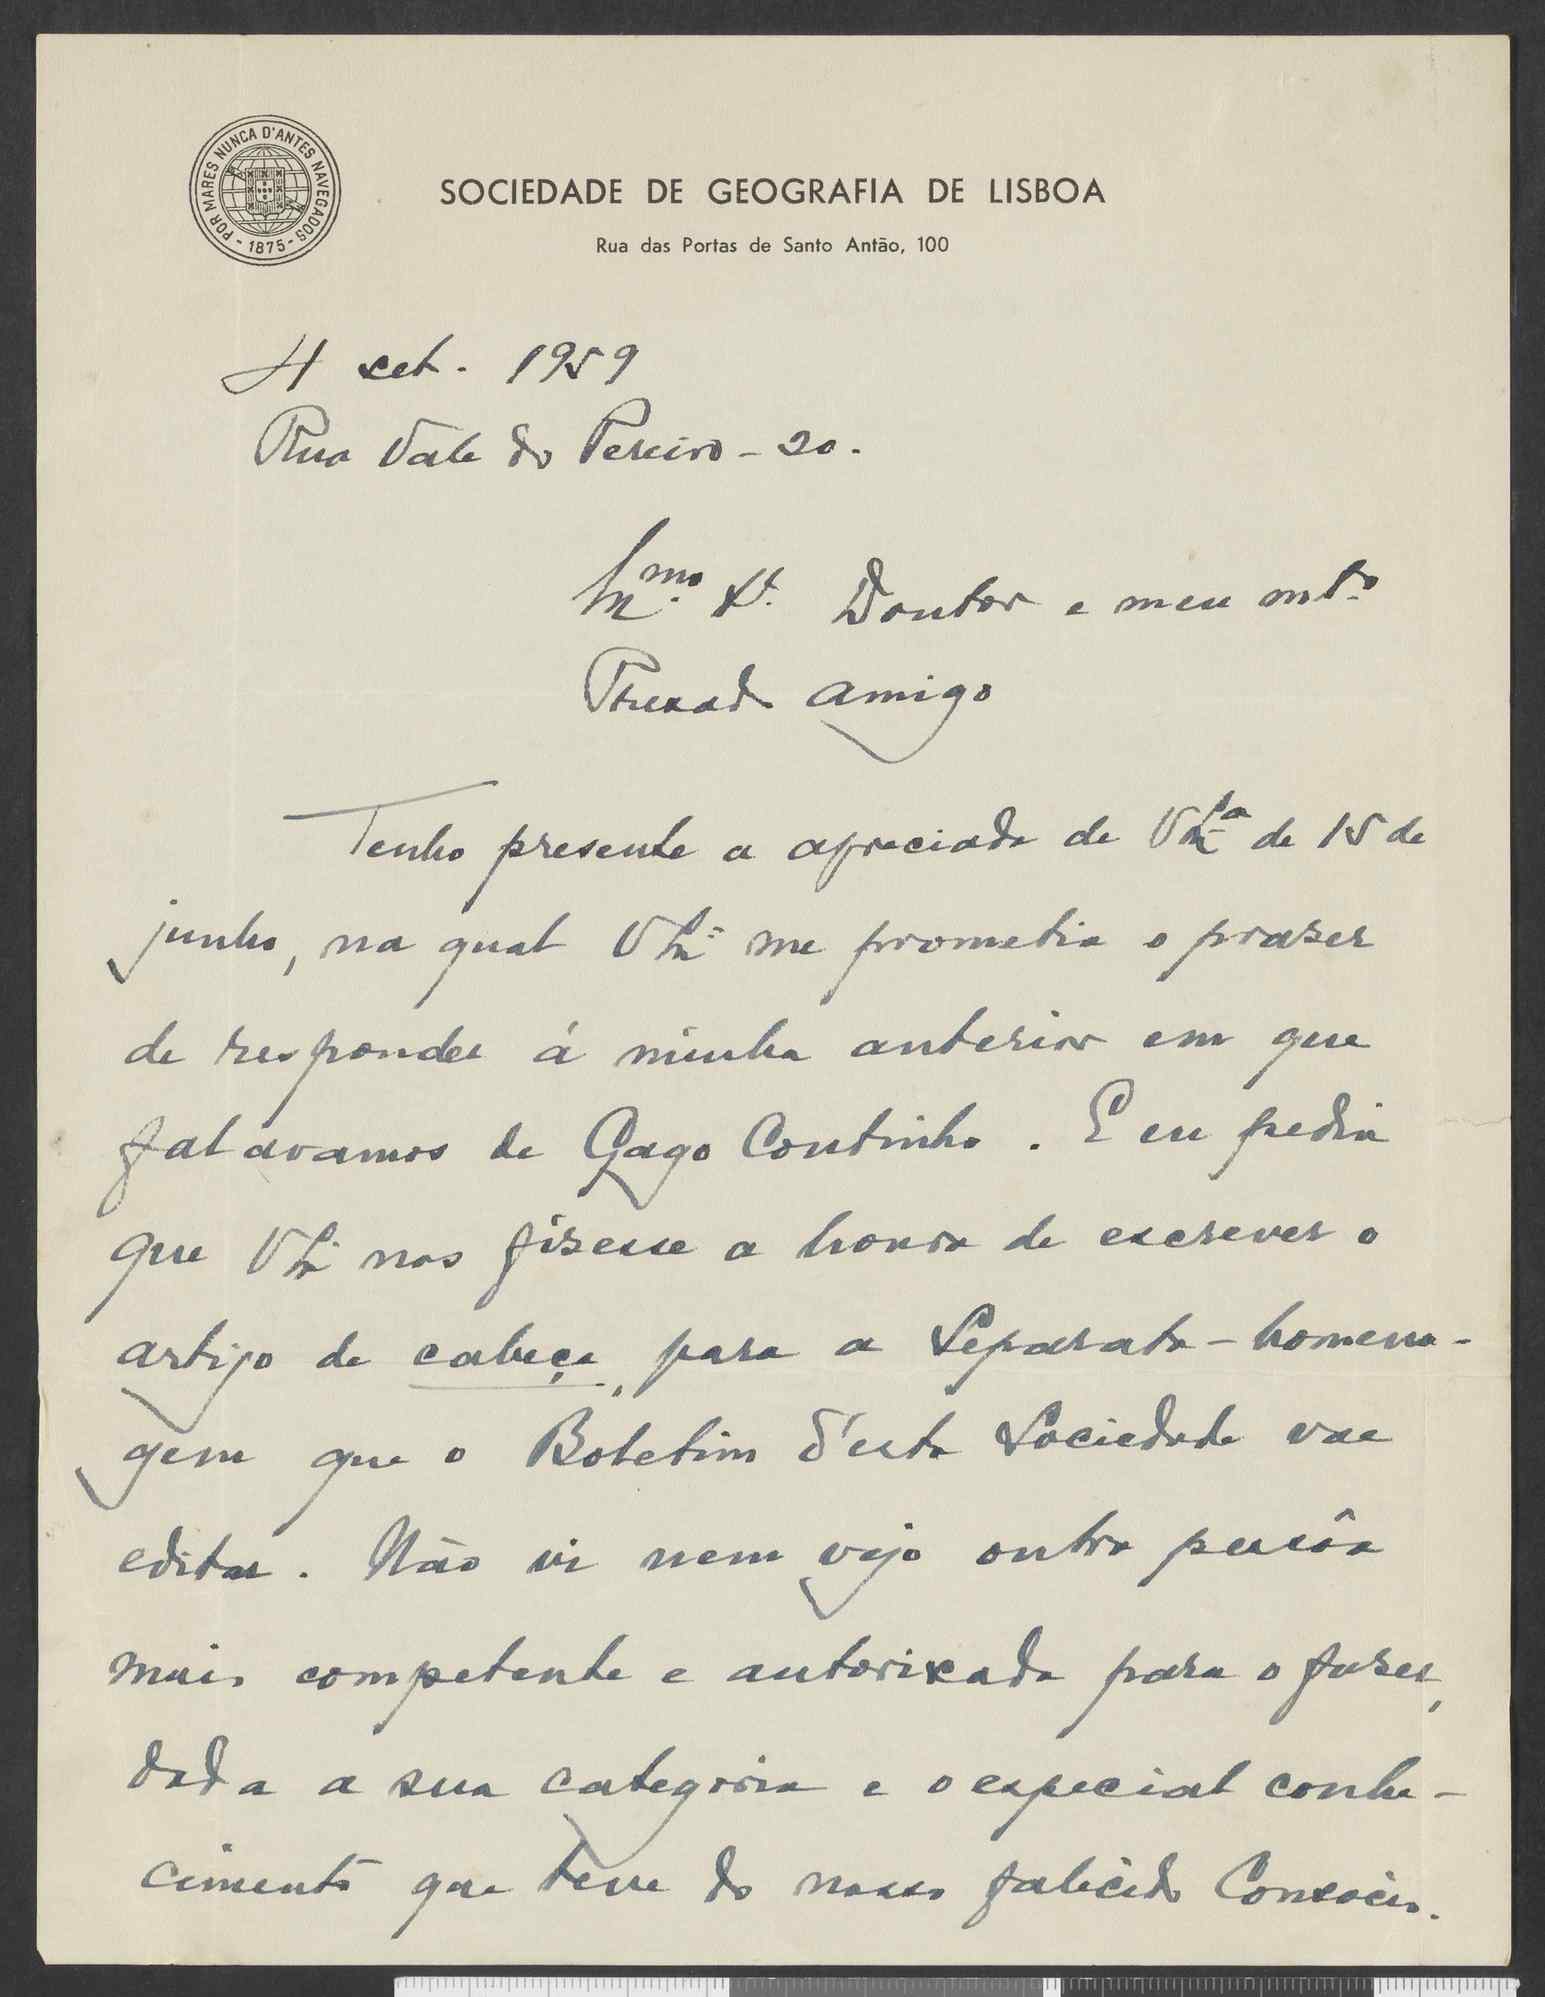 POR MARES NUNCA D'ANTES NAVEGADOS
- 1875 -
SOCIEDADE DE GEOGRAFIA DE LISBOA
Rua das Portas de Santo Antão, 100
4 set. 1959
Rua Vale do Pereiro - 20.
Exmo. Sr. Doutor e meu mto.
Prezado amigo
Tenho presente a apreciada de V Exa de 15 de
junho, na qual V Ex.ª me prometia o prazer
de responder á minha anterior em que
falavamos de Gago Coutinho. E eu pedia
que V Ex.ª nos fizesse a honra de escrever o
artigo de cabeça, para a Separata-homena-
gem que o Boletim d'esta Sociedade vae
editar. Não vi nem vejo outra pessôa
mais competente e autorizada para o fazer,
dada a sua categoria e o especial conhe-
cimento que teve do nosso falecido Consocio.